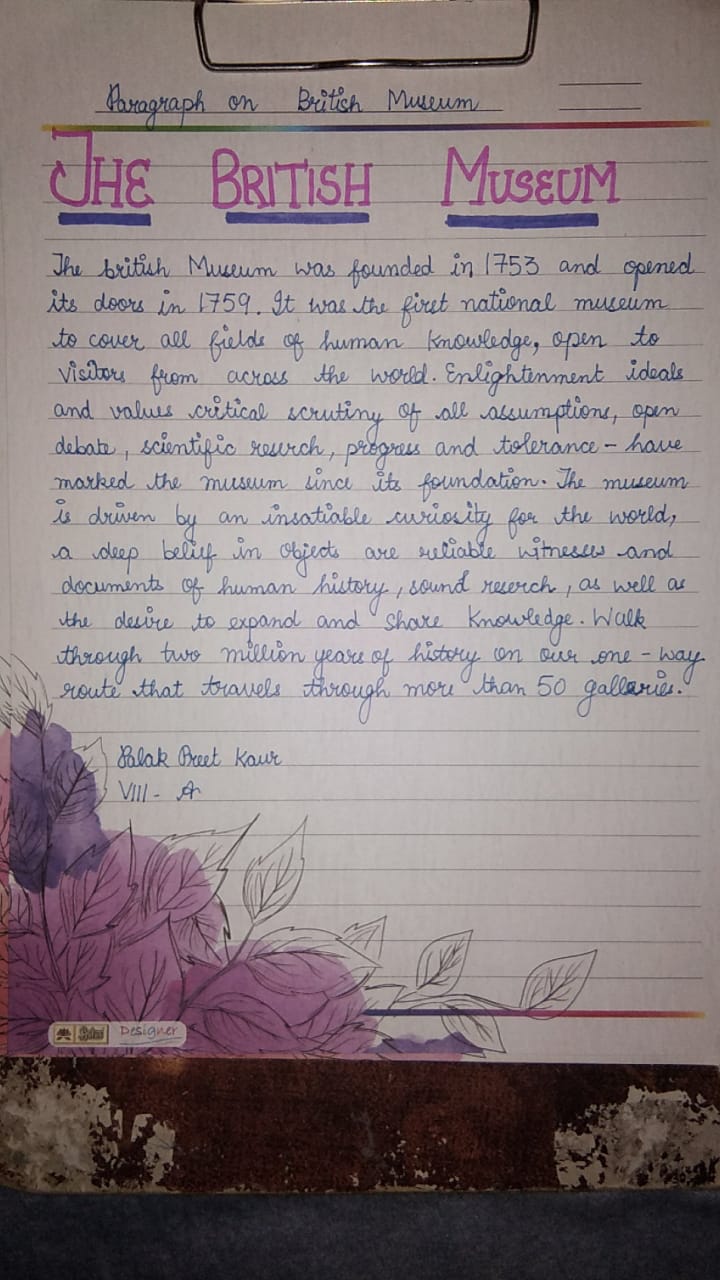 Paragraph on British Museum
THE BRITISH MUSEUM
The british Museum was founded in 1753 and opened
its doors in 1759. It was the first national museum
to cover all fields of human knowledge, open to
visitors from across the world. Enlightenment ideals
and values critical scrutiny of all assumptions, open
debate, scientific reserch, progress and tolerance - have
marked the museum since its foundation. The museum
is driven by an insatiable curiosity for the world,
a deep belief in objects are reliable witnesses and
documents of human history, sound reserch, as well as
the desire to expand and share knowledge. Walk
through two million years of history on our one-way
route that travels through more than 50 galleries.
Palak Preet Kaur
VIII - A
Designer